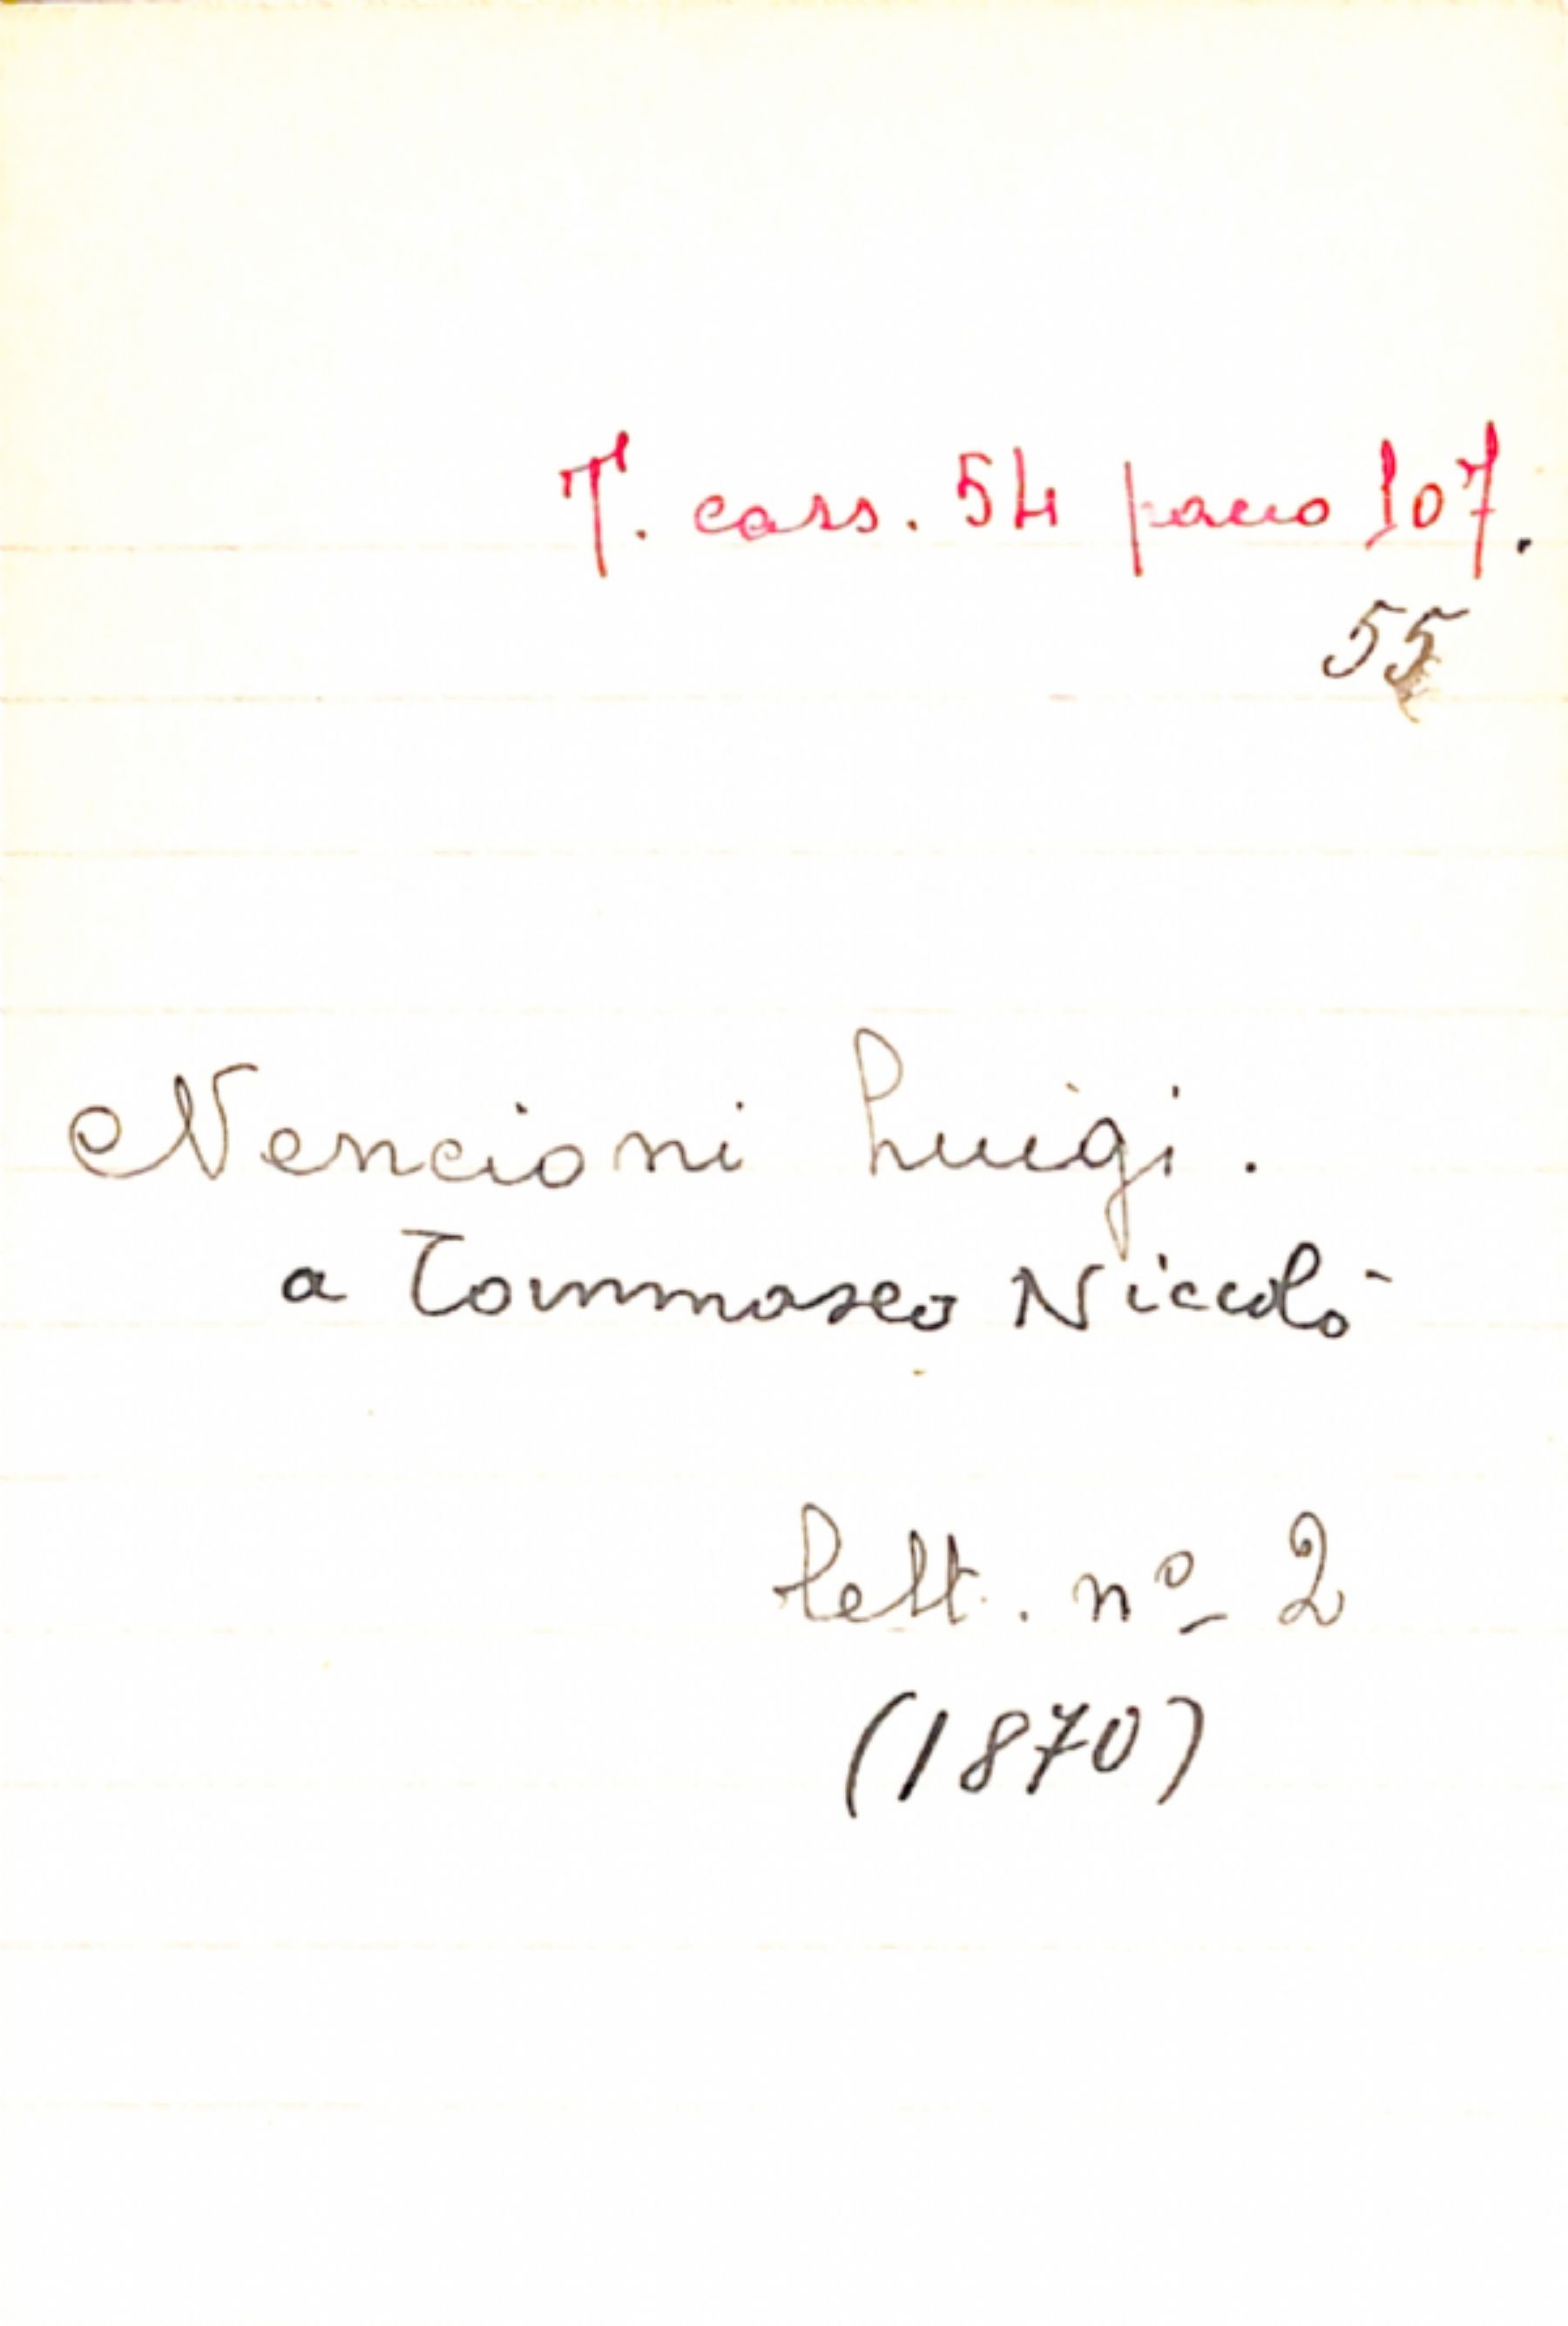 T. cass. 54 pacco 107.
55
Nencioni Luigi.
a Tommaseo Niccolò
lett. nº 2
(1870)